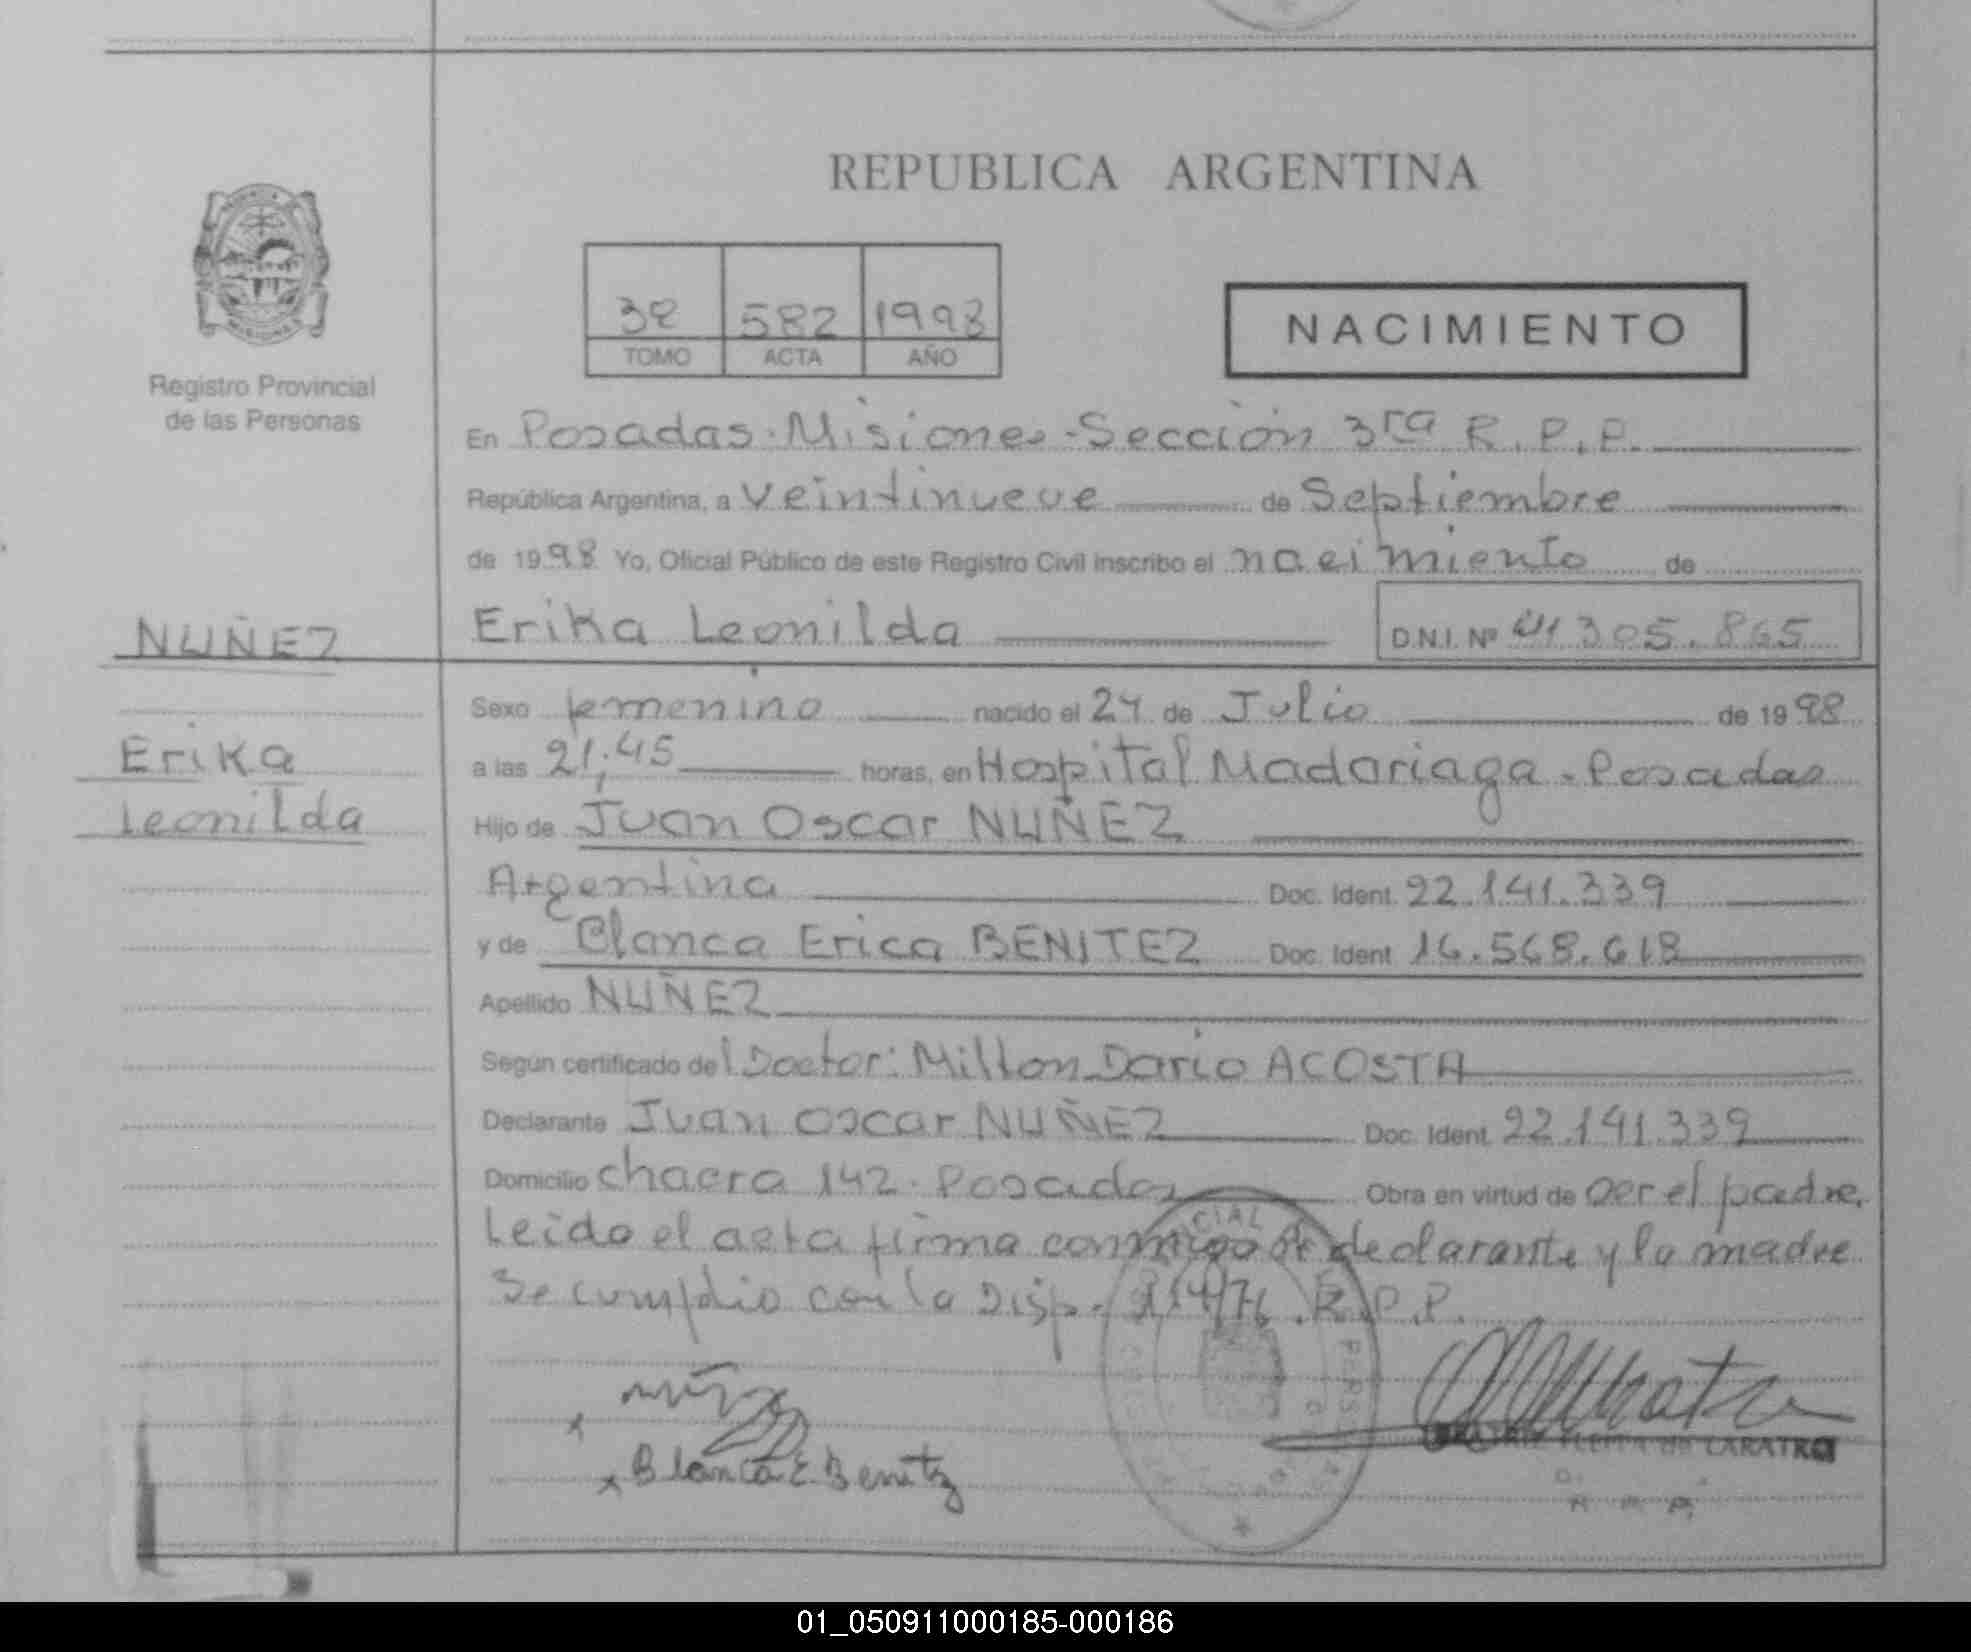 REPUBLICA ARGENTINA
582 1998
TOMO ACTA AÑO
NACIMIENTO
Registro Provincial
de las Personas
En Posadas.Misiones-Sección 3ra R.P.P.
República Argentina, a veintinueve de Septiembre
de 1998 Yo, Oficial Público de este Registro Civil inscribo el nacimiento de
NUÑEZ
Erika Leonilda D.N.I. Nº 41.305.865
Sexo femenino nacido el 24 de Julio de 1998
Erika
Leonilda
a las 21,45 horas, en Hospital Madariaga - Posadas
Hijo de Juan Oscar NUÑEZ
Argentina Doc. Ident. 22.141.339
y de Blanca Erica BENITEZ Doc. Ident. 16.568.618
Apellido NUÑEZ
Según certificado del Doctor: Milton Dario ACOSTA
Declarante Juan Oscar NUÑEZ Doc. Ident. 22.141.339
Domicilio chacra 142. Posadas Obra en virtud de ser el padre.
Leido el acta firma conmigo el declarante y la madre
Se cumplio con la Disp. R.P.P.
Blanca E. Benitz
de CARATRO
01_050911000185-000186